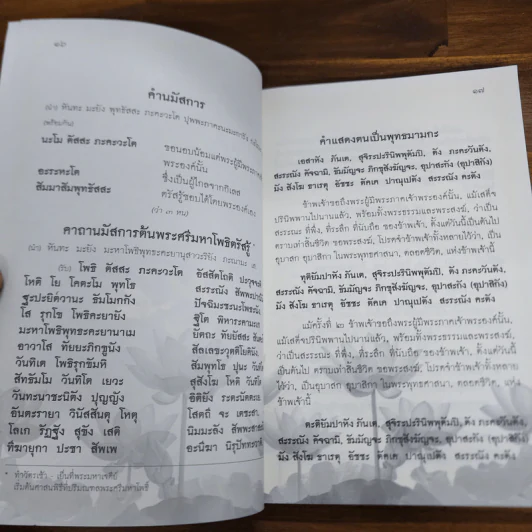 ๑๖
คำนมัสการ
(นำ) หันทะ มะยัง พุทธัสสะ ภะคะวะโต ปุพพะภาคะนะมะการัง
(พร้อมกัน)
นะโม ตัสสะ ภะคะวะโต
ขอนอบน้อมแด่พระผู้มีพระภาคเจ้า
พระองค์นั้น
อะระหะโต
ซึ่งเป็นผู้ไกลจากกิเลส
สัมมาสัมพุทธัสสะ
ตรัสรู้ชอบได้โดยพระองค์เอง
(ว่า ๓ หน)
คาถานมัสการต้นพระศรีมหาโพธิตรัสรู้*
(นำ) หันทะ มะยัง มะหาโพธิพุทธะคะยานุสาวะรียัง
(รับ) โพธิ ตัสสะ ภะคะวะโต อัสสัตโถติ
โหติ โย โคตะโม พุทโธ สะระณัง
ฐะปะยิตวานะ ธัมโมกกัง ปัจฉิมะชะนะ
โส รุกโข โพธิคะยายัง ฐิโต
มะหาโพธิพุทธะคะยานาเม ยัตถะ
อาวาโส ทัยยะภิกขูนัง
วันทิเต โพธิรุกขัมหิ สัมพุทโธ ปุนะ
สัทธัมโม วันทิโต เยวะ สุสังโฆ โหติ
วันทะนาชะนิตัง ปุญญัง อิติยัง ระตะนัตตะเย
อันตะรายา วินัสสันตุ โหตุ โสตถี จะ
โลเก รัฏฐัง สุขัง เสติ นิมมะลัง
ทีฆายุกา ปะชา สัพเพ อะนีฆา
* ทำวัตรเช้า - เย็นที่พระมหาเจดีย์
๑๗
คำแสดงตนเป็นพุทธมามกะ
เอสาหัง ภันเต, สุจิระปรินิพพุตัมปิ, ตัง ภะคะวันตัง,
สะระณัง คัจฉามิ, ธัมมัญจะ ภิกขุสังฆัญจะ, อุปาสะกัง (อุปาสิกัง)
มัง สังโฆ ธาเรตุ อัชชะ ตัคเค ปาณุเปตัง สะระณัง คะตัง
ข้าพเจ้าขอถึงพระผู้มีพระภาคเจ้าพระองค์นั้น, แม้เสด็จ
ปรินิพพานไปนานแล้ว, พร้อมทั้งพระธรรมและพระสงฆ์, ว่าเป็น
สะระณะ ที่พึ่ง, ที่ระลึก ที่นับถือ ของข้าพเจ้า, ตั้งแต่วันนี้เป็นต้นไป
ตราบเท่าสิ้นชีวิต ขอพระสงฆ์, โปรดจำข้าพเจ้าทั้งหลายไว้ว่า, เป็น
อุบาสก อุบาสิกา ในพระพุทธศาสนา, ตลอดชีวิต, แห่งข้าพเจ้านี้
ทุติยัมปาหัง ภันเต, สุจิระปรินิพพุตัมปิ, ตัง ภะคะวันตัง,
สะระณัง คัจฉามิ, ธัมมัญจะ ภิกขุสังฆัญจะ, อุปาสะกัง (อุปาสิกัง)
มัง สังโฆ ธาเรตุ อัชชะ ตัคเค ปาณุเปตัง สะระณัง คะตัง
แม้ครั้งที่ ๒ ข้าพเจ้าขอถึงพระผู้มีพระภาคเจ้าพระองค์นั้น,
แม้เสด็จปรินิพพานไปนานแล้ว, พร้อมทั้งพระธรรมและพระสงฆ์,
ว่าเป็นสะระณะ ที่พึ่ง, ที่ระลึก ที่นับถือ ของข้าพเจ้า, ตั้งแต่วันนี้
เป็นต้นไป ตราบเท่าสิ้นชีวิต, ขอพระสงฆ์; โปรดจำข้าพเจ้าทั้งหลาย
ไว้ว่า, เป็นอุบาสก อุบาสิกา ในพระพุทธศาสนา, ตลอดชีวิต, แห่ง
ข้าพเจ้านี้
ตะติยัมปาหัง ภันเต, สุจิระปรินิพพุตัมปิ, ตัง ภะคะวันตัง,
สะระณัง คัจฉามิ, ธัมมัญจะ ภิกขุสังฆัญจะ, อุปาสะกัง (อุปาสิกัง)
มัง สังโฆ ธาเรตุ อัชชะ ตัคเค ปาณุเปตัง สะระณัง คะตัง